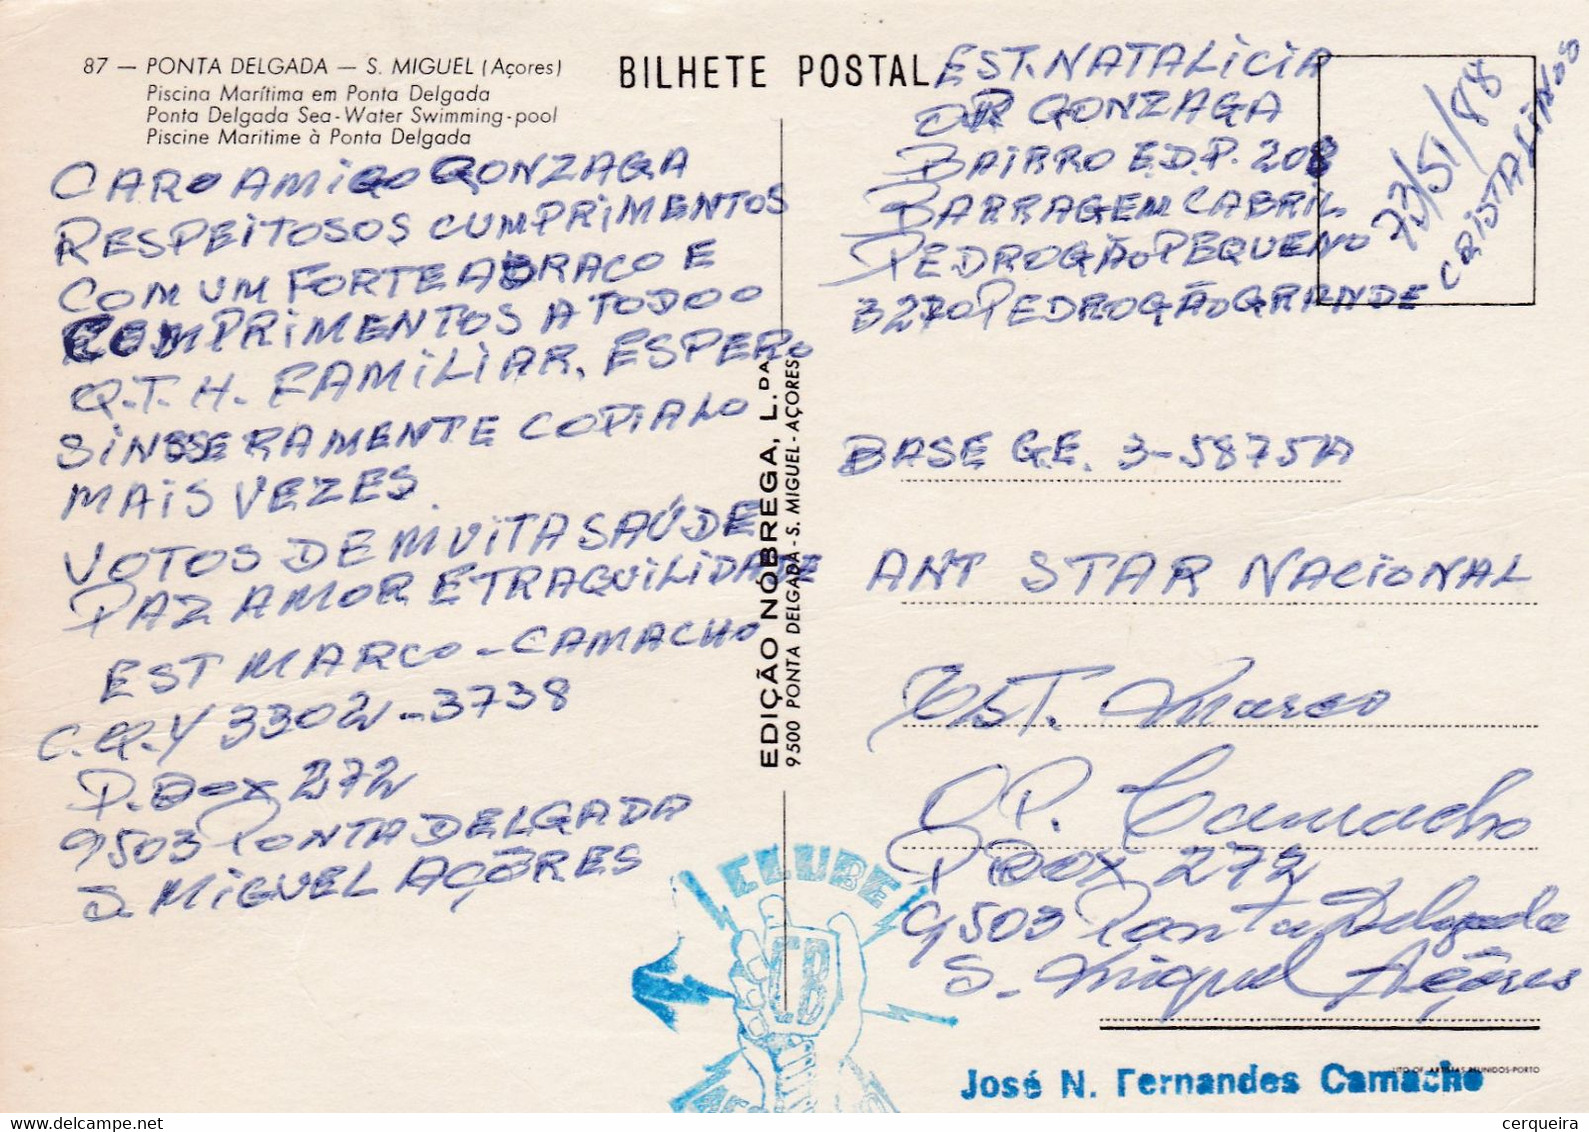 87 — PONTA DELGADA — S. MIGUEL (Açores)
Piscina Marítima em Ponta Delgada
Ponta Delgada Sea-Water Swimming-pool
Piscine Maritime à Ponta Delgada
BILHETE POSTAL
CARO AMIGO GONZAGA
RESPEITOSOS CUMPRIMENTOS
COM UM FORTE ABRACO E
COMPRIMENTOS A TODO O
Q.T.H. FAMILIAR, ESPERO
SINSSERAMENTE COPIALO
MAIS VEZES.
VOTOS DE MUITA SAÚDE
PAZ AMOR E TRAQUILIDADE
EST MARCO - CAMACHO
C.Q.Y 3302-3738
P. BOX 272
9503 PONTA DELGADA
S. MIGUEL AÇÕRES
EDIÇÃO NÓBREGA, L.DA
9500 PONTA DELGADA - S. MIGUEL - AÇORES
EST. NATALICIA
OP GONZAGA
BAIRRO E.D.P. 208
BARRAGEM CABRIL
PEDROGÃO PEQUENO
3270 PEDROGÃO GRANDE
73/51/88
CRISTALINOS
BASE G.E. 3-5875A
ANT STAR NACIONAL
EST. Marco
OP. Camacho
P BOX 272
9503 Ponta Delgada
S. Miguel Açôres
CLUBE
CB
José N. Fernandes Camacho
LITO OF. ARTISTAS REUNIDOS-PORTO
cerqueira